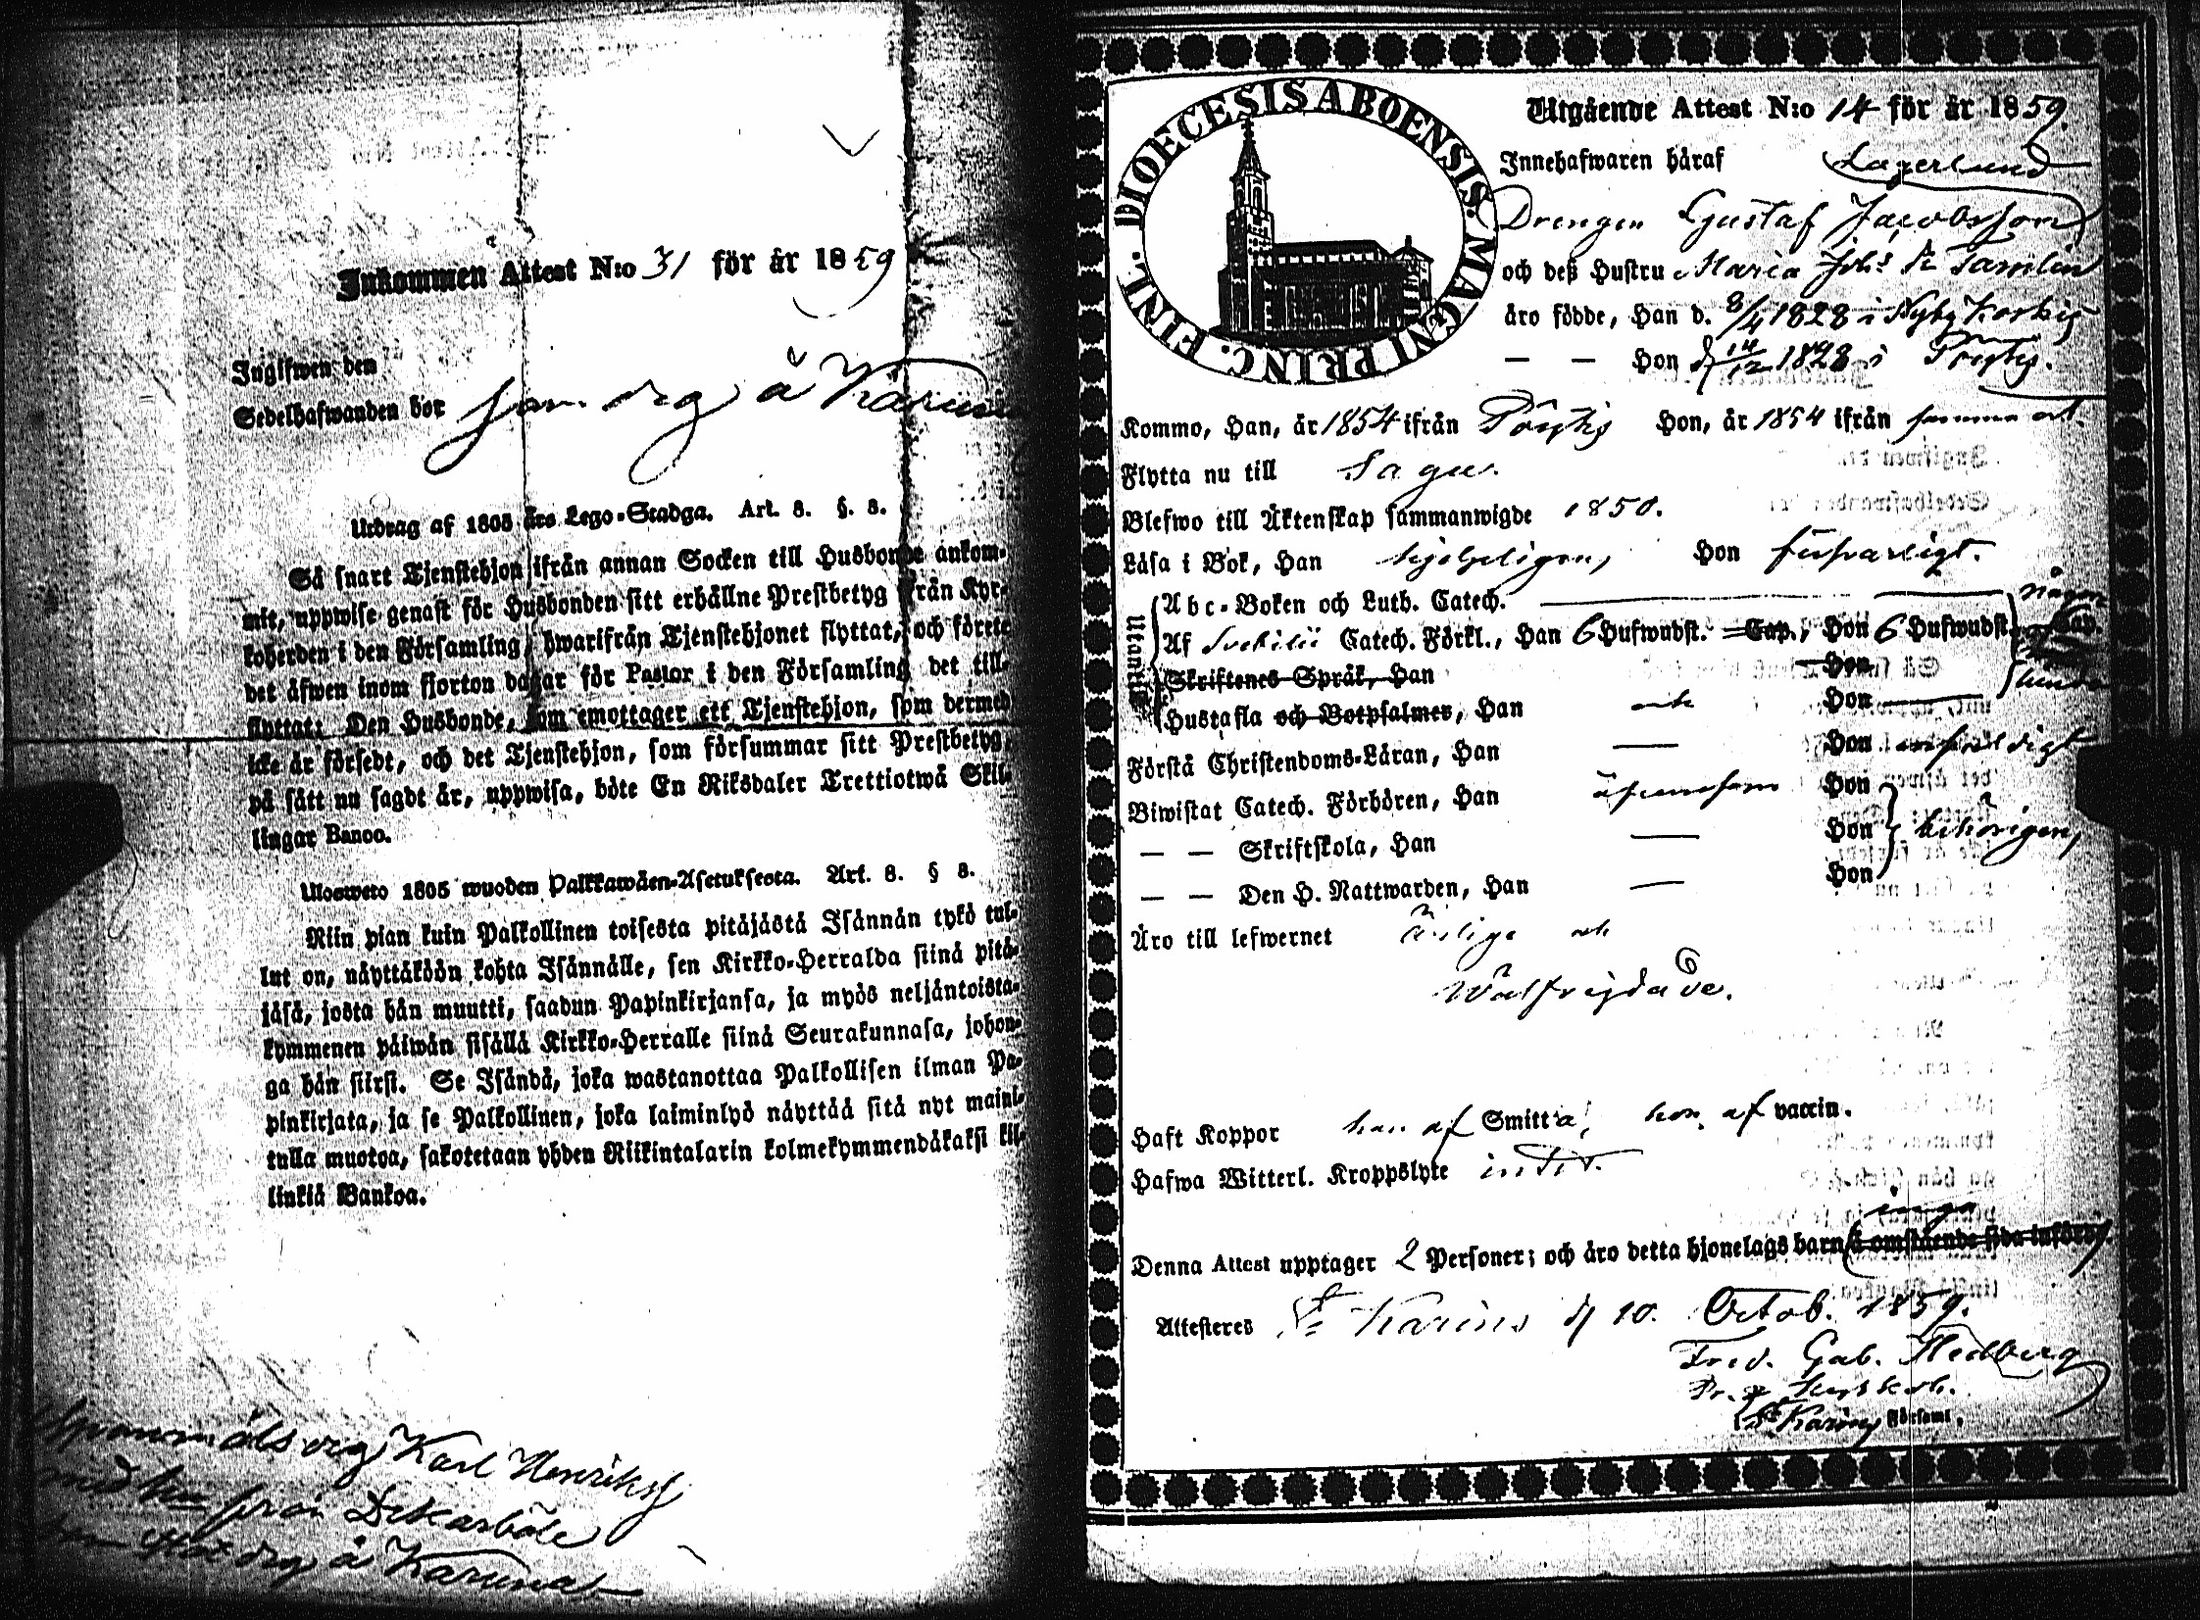 Inkommen Attest N:o 31 för år 1859
Ingifwen den
Sedelhafwanden bor som drg å Karuna
Utdrag af 1805 års Lego-Stadga. Art. 8. §. 8.
Så snart Tjenstehjon ifrån annan Socken till Husbonde ankom-
mit, uppwise genast för Husbonden sitt erhållne Prestbetyg ifrån Kyr-
koherden i den Församling, hwarifrån Tjenstehjonet flyttat, och förete
det äfwen inom fjorton dagar för Pastor i den Församling det till-
flyttat: Den Husbonde, som emottager ett Tjenstehjon, som dermed
icke är försedt, och det Tjenstehjon, som försummar sitt Prestbetyg,
på sätt nu sagdt är, uppwisa, böte En Riksdaler Trettiotwå Skil-
lingar Banco.
Ulosweto 1805 wuoden Palkkawäen-Asetuksesta. Art. 8. § 8.
Niin pian kuin Palkollinen toisesta pitäjästä Isännän tykö tul-
lut on, näyttäköön kohta Isännälle, sen Kirkko-Herralda siinä pitä-
jäsä, josta hän muutti, saadun Papinkirjansa, ja myös neljäntoista-
kymmenen päiwän sisällä Kirkko-Herralle siinä Seurakunnasa, johon-
ga hän siirsi. Se Isändä, joka wastanottaa Palkollisen ilman Pa-
pinkirjata, ja se Palkollinen, joka laiminlyö näyttää sitä nyt maini-
tulla muotoa, sakotetaan yhden Riikintalarin kolmekymmendäkaksi kil-
linkiä Bankoa.
drg Karl Henriksf
från Dekarböle
drg å Karuna
DIOECESIS ABOENSIS. MAGNI PRINC. FINL.
Utgående Attest N:o 14 för år 1859.
Innehafwaren häraf Lagerlund
Drengen Gustaf Jacobsson
och deß Hustru Maria Joh:s Dr Tamlin
äro födde, Han d. 8/4 1828 i Nyby Korkis
— — Hon d 14/12 1828 i
Kommo, Han, år 1854 ifrån Hon, år 1854 ifrån samma ort.
Flytta nu till Sagu.
Blefwo till Äktenskap sammanwigde 1850.
Läsa i Bok, Han hjelpeligen, Hon försvarligt.
Utantill
Abc-Boken och Luth. Catech.
Af Svebilii Catech. Förkl., Han 6 Hufwudst. Cap., Hon 6 Hufwudst. några Cap.
Skriftenes Språk, Han Hon
Hustafla och Botpsalmer, Han och Hon
Förstå Christendoms-Läran, Han — Hon enfaldigt
Biwistat Catech. Förhören, Han äfvensom Hon
— — Skriftskola, Han — Hon behörigen,
— — Den H. Nattwarden, Han — Hon
Äro till lefwernet ärlige och
Wälfrejdade.
Haft Koppor han af Smitta, hon af vaccin.
Hafwa Witterl. Kroppslyte intet.
inga
Denna Attest upptager 2 Personer; och äro detta hjonelags barn å omstående sida införde.
Attesteres St Karins d 10. Octob. 1859.
Fred. Gab. Hedberg
St Karins Församl.